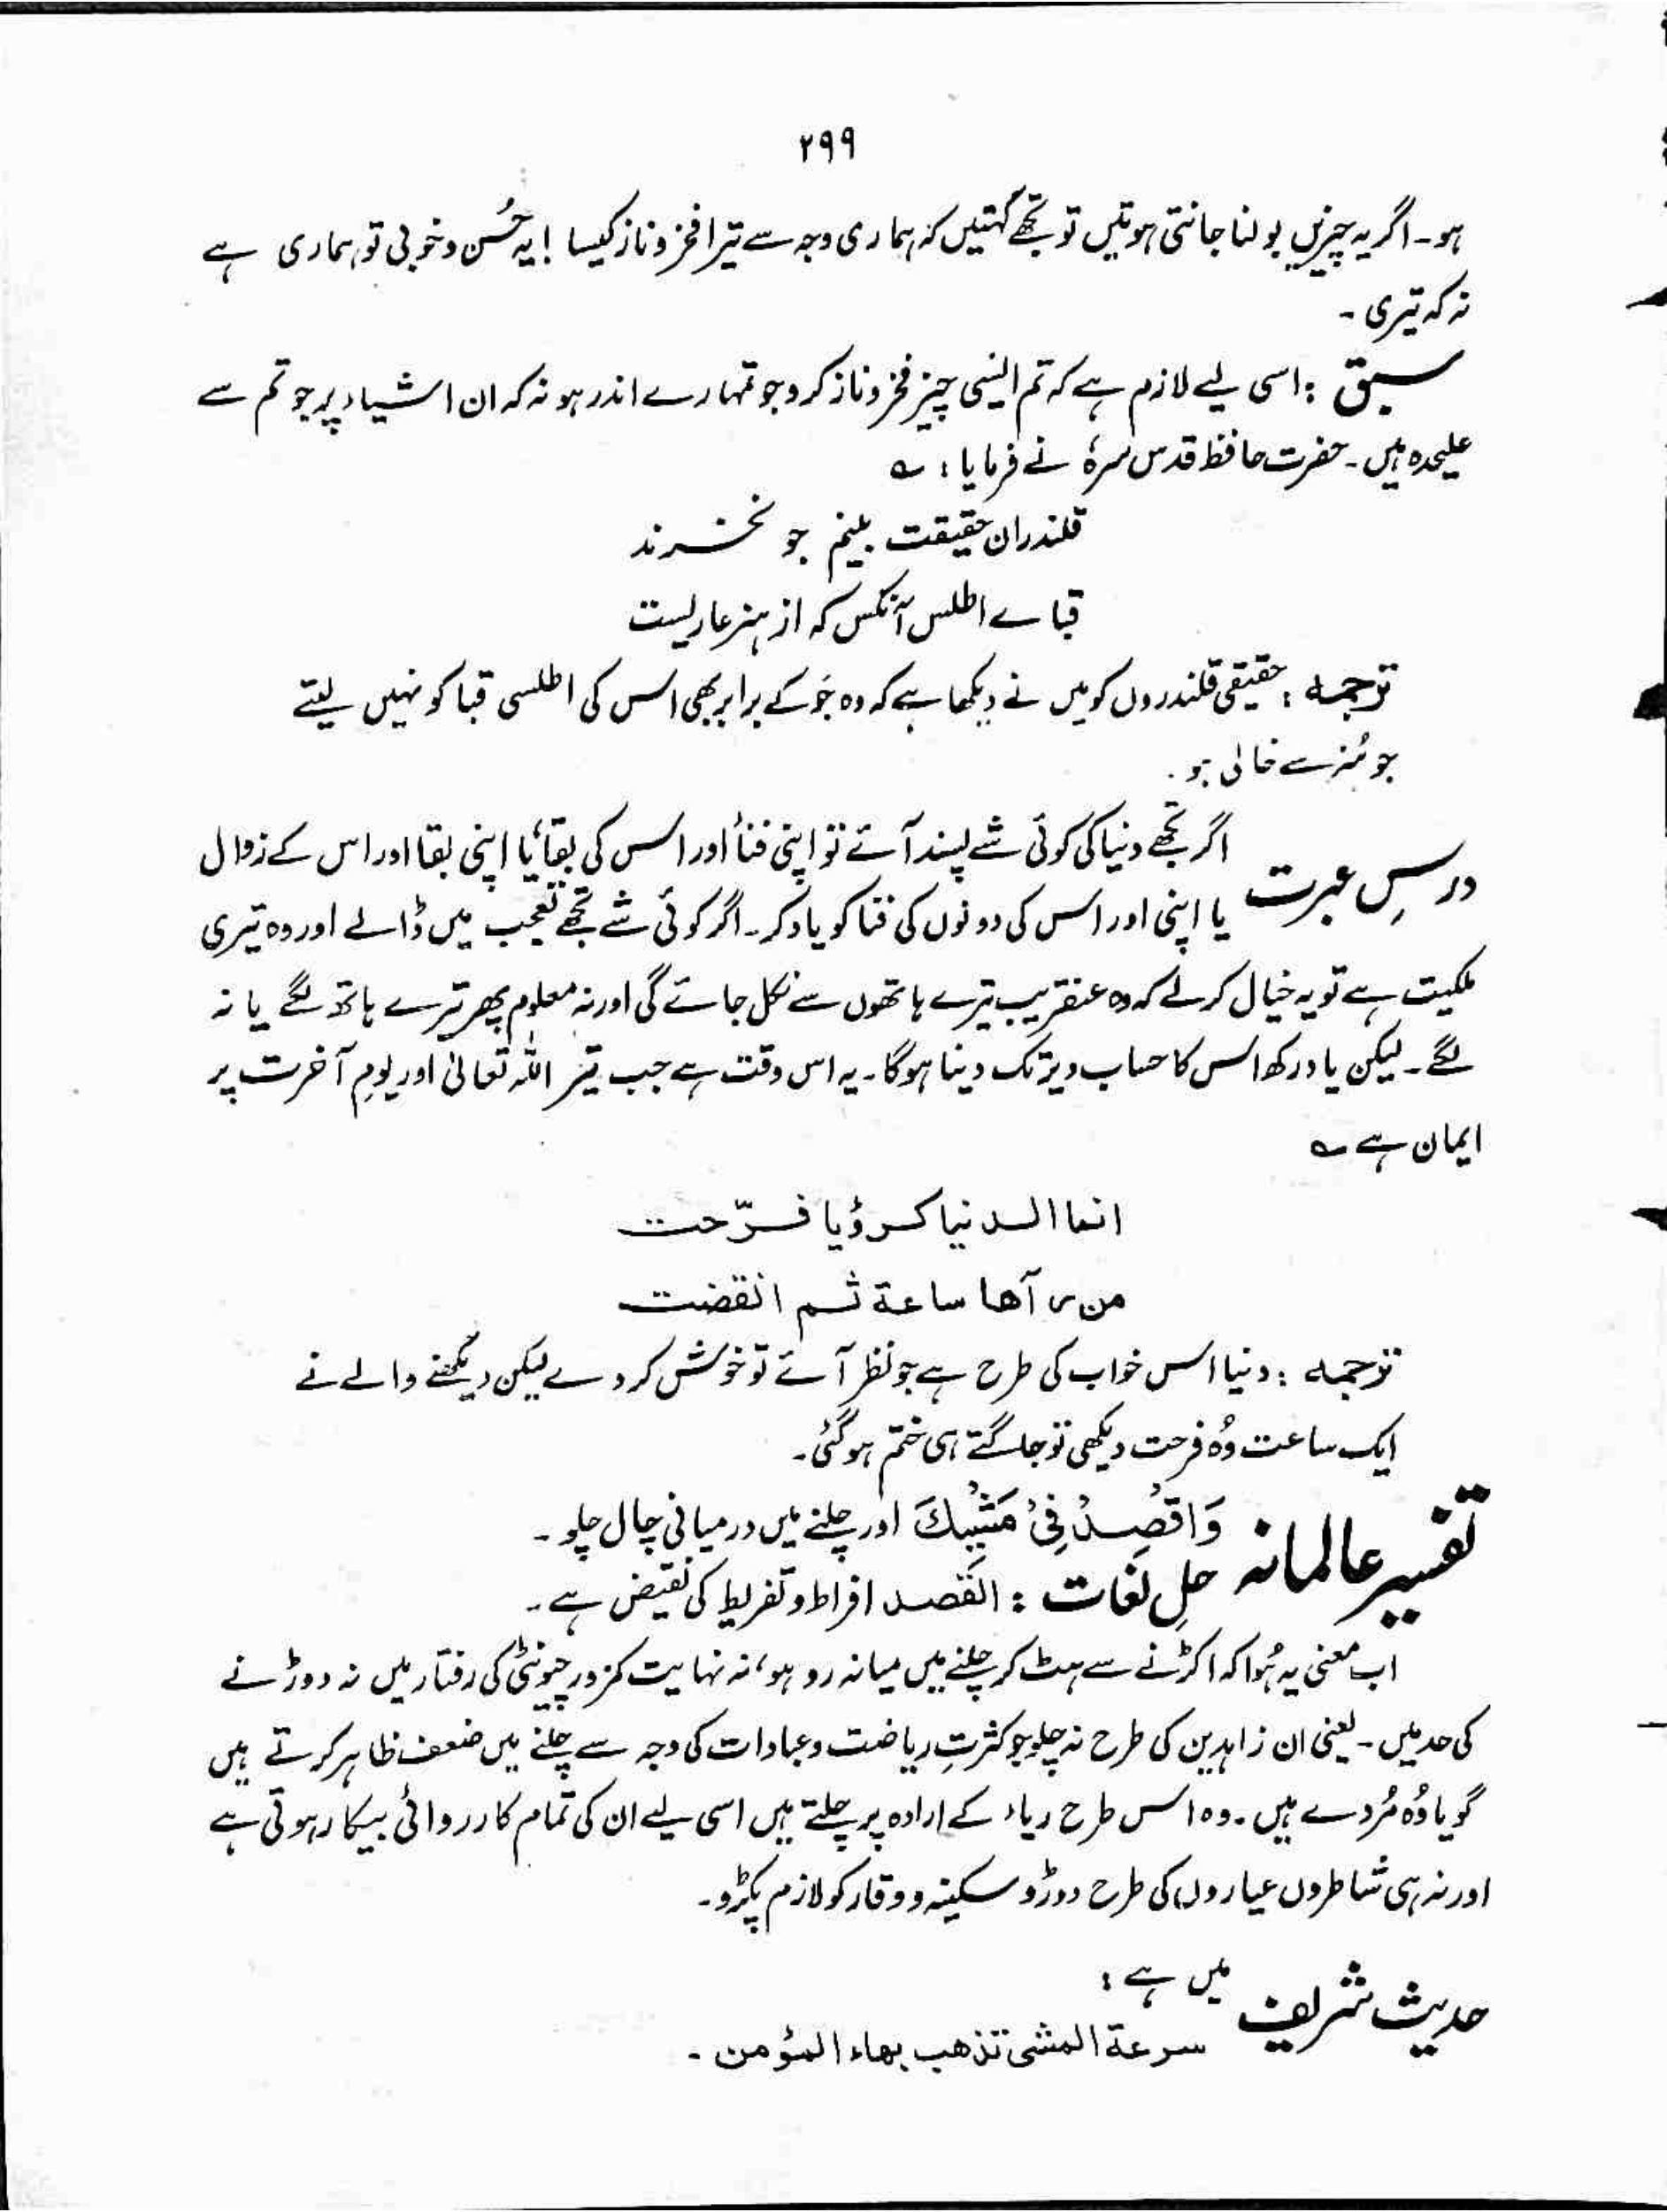 ۲۹۹
ہو۔ اگر یہ چیزیں بولنا جانتی ہوتیں تو تجھے کہتیں کہ ہماری وجہ سے تیرا فخر و ناز کیسا ! یہ حُسن و خوبی تو ہماری ہے
نہ کہ تیری ۔
سبق : اسی لیے لازم ہے کہ تم ایسی چیز فخر و ناز کرو جو تمہارے اندر ہو نہ کہ ان اشیاء پر جو تم سے
علیحدہ ہیں ۔ حضرت حافظ قدس سرہٗ نے فرمایا : ؎
قلندران حقیقت بنیم جو نخرند
قباے اطلس آنکس کہ از ہنر عاریست
ترجمہ : حقیقی قلندروں کو میں نے دیکھا ہے کہ وہ جَو کے برابر بھی اس کی اطلسی قبا کو نہیں لیتے
جو ہُنر سے خالی ہو ۔
درسِ عبرت اگر تجھے دنیا کی کوئی شے پسند آئے تو اپنی فنا اور اس کی بقا یا اپنی بقا اور اس کے زوال
یا اپنی اور اس کی دونوں کی فنا کو یاد کر ۔ اگر کوئی شے تجھے تعجب میں ڈالے اور وہ تیری
ملکیت ہے تو یہ خیال کر لے کہ وہ عنقریب تیرے ہاتھوں سے نکل جائے گی اور نہ معلوم پھر تیرے ہاتھ لگے یا نہ
لگے ۔ لیکن یاد رکھ اس کا حساب دیر تک دینا ہوگا ۔ یہ اس وقت ہے جب تیر اللہ تعالیٰ اور یومِ آخرت پر
ایمان ہے ؎
انما الدنیا کرؤیا فرّحت
من رآھا ساعة ثم انقضت
ترجمہ : دنیا اس خواب کی طرح ہے جو نظر آئے تو خوش کر دے لیکن دیکھنے والے نے
ایک ساعت وُہ فرحت دیکھی تو جاگتے ہی ختم ہو گئی ۔
تفسیر عالمانہ وَاقْصِدْ فِیْ مَشْیِكَ اور چلنے میں درمیانی چال چلو ۔
حلِ لغات : القصد افراط و تفریط کی نقیض ہے ۔
اب معنی یہ ہُوا کہ اکڑنے سے ہٹ کر چلنے میں میانہ رو ہو، نہ نہایت کمزور چیونٹی کی رفتار میں نہ دوڑنے
کی حد میں ۔ یعنی ان زاہدین کی طرح نہ چلو جو کثرتِ ریاضت و عبادات کی وجہ سے چلنے میں ضعف ظاہر کرتے ہیں
گویا وُہ مُردے ہیں ۔ وہ اس طرح ریاء کے ارادہ پر چلتے ہیں اسی لیے ان کی تمام کارروائی بیکار ہوتی ہے
اور نہ ہی شاطروں عیاروں کی طرح دوڑو سکینہ و وقار کو لازم پکڑو ۔
حدیث شریف میں ہے :
سرعة المشی تذهب بهاء المؤمن ۔